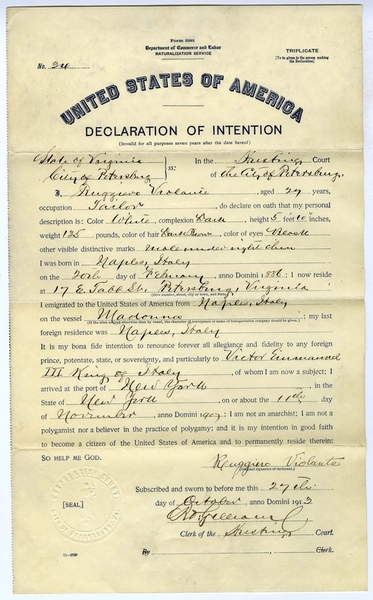 Form 2202
Department of Commerce and Labor
NATURALIZATION SERVICE
TRIPLICATE
(To be given to the person making the Declaration)
No. 24
UNITED STATES OF AMERICA
DECLARATION OF INTENTION
(Invalid for all purposes seven years after the date hereof)
State of Virginia
City of Petersburg
ss:
In the Hustings Court
of the City of Petersburg.
I, Ruggiero Violante, aged 27 years,
occupation Tailor, do declare on oath that my personal
description is: Color White, complexion Dark, height 5 feet 10 inches,
weight 135 pounds, color of hair Dark Brown, color of eyes Black
other visible distinctive marks Mole under right chin
I was born in Naples, Italy
on the 20th day of February, anno Domini 1886; I now reside
at 17 E. Tabb St. Petersburg, Virginia
(Give number, street, city or town, and State.)
I emigrated to the United States of America from Naples, Italy
on the vessel Madonna; my last
(If the alien arrived otherwise than by vessel, the character of conveyance or name of transportation company should be given.)
foreign residence was Naples, Italy
It is my bona fide intention to renounce forever all allegiance and fidelity to any foreign
prince, potentate, state, or sovereignty, and particularly to Victor Emmanuel
III King of Italy, of whom I am now a subject; I
arrived at the port of New York, in the
State of New York, on or about the 11th day
of November, anno Domini 1907; I am not an anarchist; I am not a
polygamist nor a believer in the practice of polygamy; and it is my intention in good faith
to become a citizen of the United States of America and to permanently reside therein:
SO HELP ME GOD.
Ruggiero Violante
(Original signature of declarant.)
Subscribed and sworn to before me this 27th
[SEAL]
day of October, anno Domini 1913
Clerk of the Hustings Court.
By, Clerk.